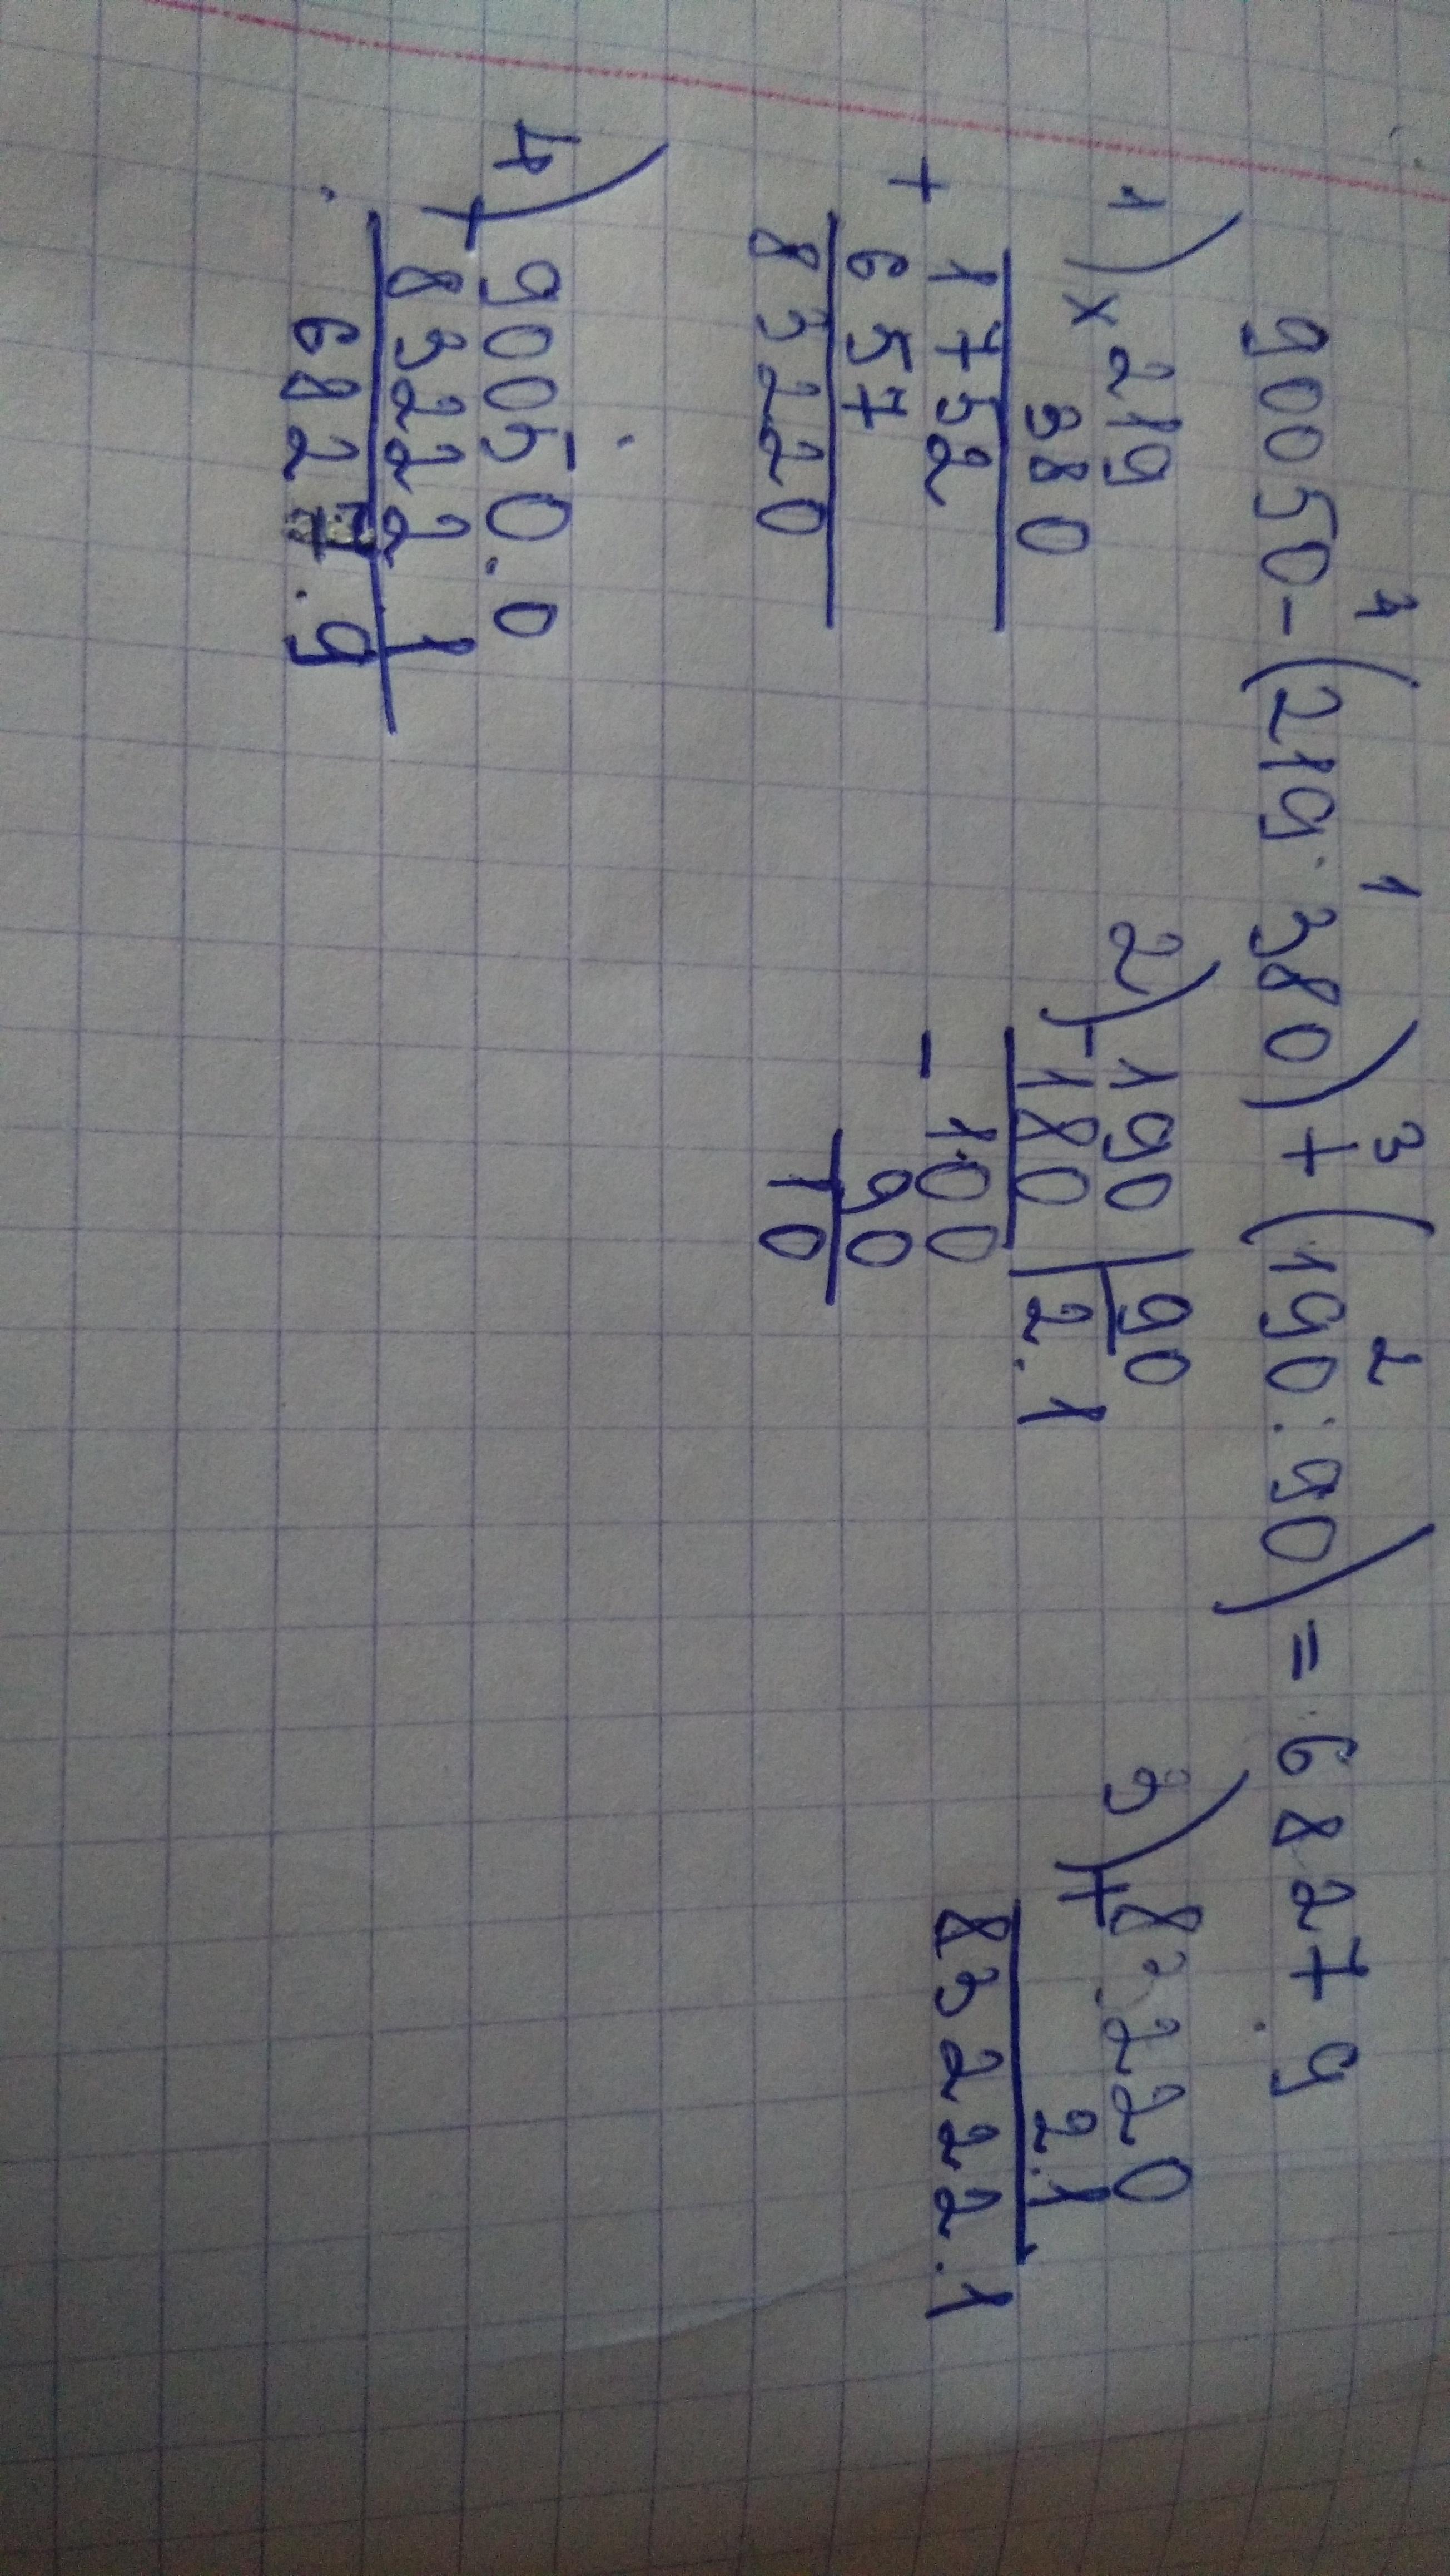 4 1 3 2
90050-(219·380)+(190:90)=6827.9
1) × 219
380
1752
+ 657
83220
2) - 190 | 90
180 | 2.1
- 100
90
10
3) + 83220
2.1
83222.1
4) - 90050.0
83222 1
6827.9